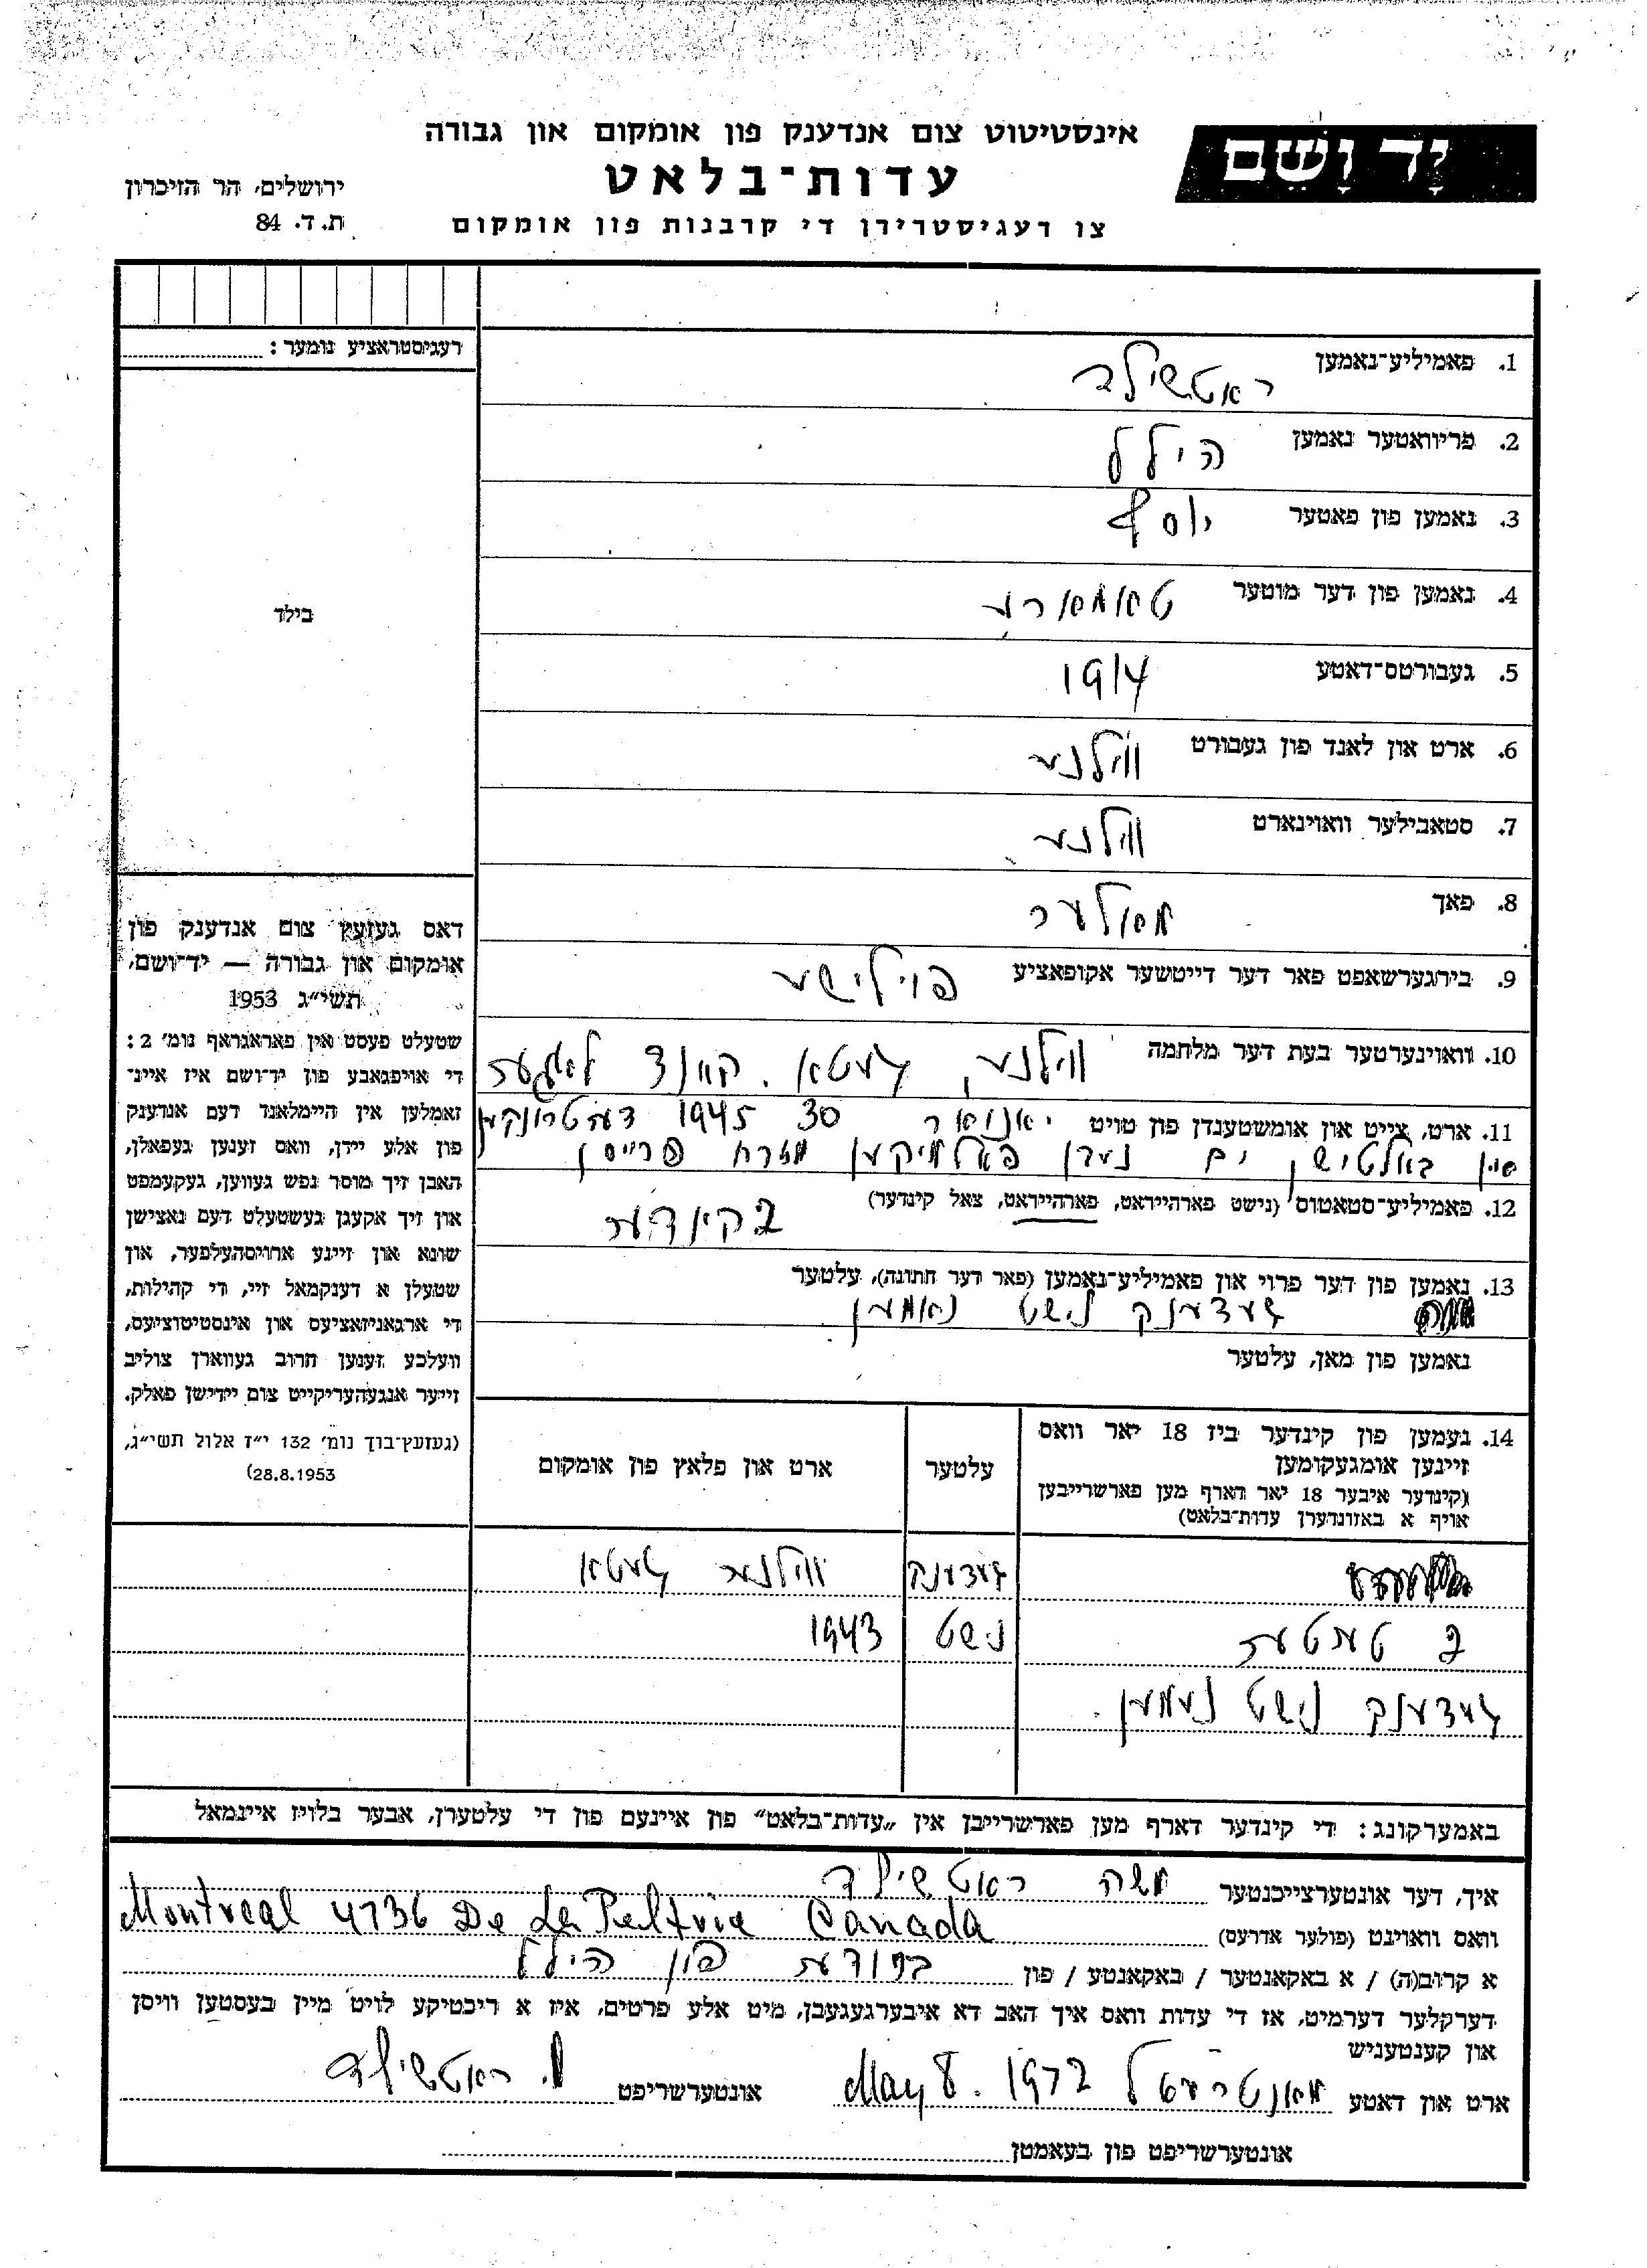 יָד וָשֵׁם
אינסטיטוט צום אנדענק פון אומקום און גבורה
עדות־בלאט
צו רעגיסטרירן די קרבנות פון אומקום
ירושלים, הר הזיכרון
ת.ד. 84
רעגיסטראציע נומער:
בילד
1. פאמיליע־נאמען ראטשילד
2. פריוואטער נאמען הילל
3. נאמען פון פאטער יוסף
4. נאמען פון דער מוטער טאמארע
5. געבורטס־דאטע 1914
6. ארט און לאנד פון געבורט ווילנע
7. סטאבילער וואוינארט ווילנע
8. פאך מאלער
9. בירגערשאפט פאר דער דייטשער אקופאציע פוילישע
10. וואוינערטער בעת דער מלחמה ווילנע, געטא. קאנצ לאגער
11. ארט, צייט און אומשטענדן פון טויט יאנואר 30 1945 דערטרונקען
אין באלטישן ים נעבן פאלמיקען מזרח פרייסן
12. פאמיליע־סטאטוס (נישט פארהייראט, פארהייראט, צאל קינדער)
2 קינדער
13. נאמען פון דער פרוי און פאמיליע־נאמען (פאר דער חתונה), עלטער
געדענק נישט נאמען
נאמען פון מאן, עלטער
14. נעמען פון קינדער ביז 18 יאר וואס
זיינען אומגעקומען
(קינדער איבער 18 יאר דארף מען פארשרייבן
אויף א באזונדערן עדות־בלאט)
עלטער
ארט און פלאץ פון אומקום
געדענק ווילנע געטא
2 טעכטער נישט 1943
געדענק נישט נעמען.
דאס געזעץ צום אנדענק פון
אומקום און גבורה — יד־ושם,
תשי״ג 1953
שטעלט פעסט אין פאראגראף נומ׳ 2:
די אויפגאבע פון יד־ושם איז איינ־
זאמלען אין היימלאנד דעם אנדענק
פון אלע יידן, וואס זענען געפאלן,
האבן זיך מוסר נפש געווען, געקעמפט
און זיך אקעגן געשטעלט דעם נאצישן
שונא און זיינע ארויסהעלפער, און
שטעלן א דענקמאל זיי, די קהילות,
די ארגאניזאציעס און אינסטיטוציעס,
וועלכע זענען חרוב געווארן צוליב
זייער אנגעהעריקייט צום יידישן פאלק.
(געזעץ־בוך נומ׳ 132 י״ז אלול תשי״ג,
28.8.1953)
באמערקונג: די קינדער דארף מען פארשרייבן אין „עדות־בלאט” פון איינעם פון די עלטערן, אבער בלויז איינמאל
איך, דער אונטערצייכנטער משה ראטשילד
וואס וואוינט (פולער אדרעס) Montreal 4736 De La Peltrie Canada
א קרוב(ה) / א באקאנטער / באקאנטע / פון ברודער פון הילל
דערקלער דערמיט, אז די עדות וואס איך האב דא איבערגעגעבן, מיט אלע פרטים, איז א ריכטיקע לויט מיין בעסטען וויסן
און קענטעניש
ארט און דאטע מאנטרעאל May 8. 1972 אונטערשריפט מ. ראטשילד
אונטערשריפט פון בעאמטן